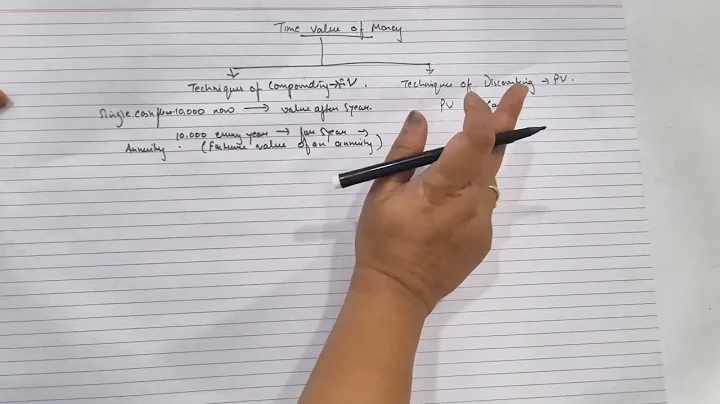 Time Value of Money
Technique of Compounding → FV. Techniques of Discounting → PV.
Single cashflow 10,000 now → value after 5 years. PV
10,000 every year → for 5 year →
Annuity. (Future value of an annuity)